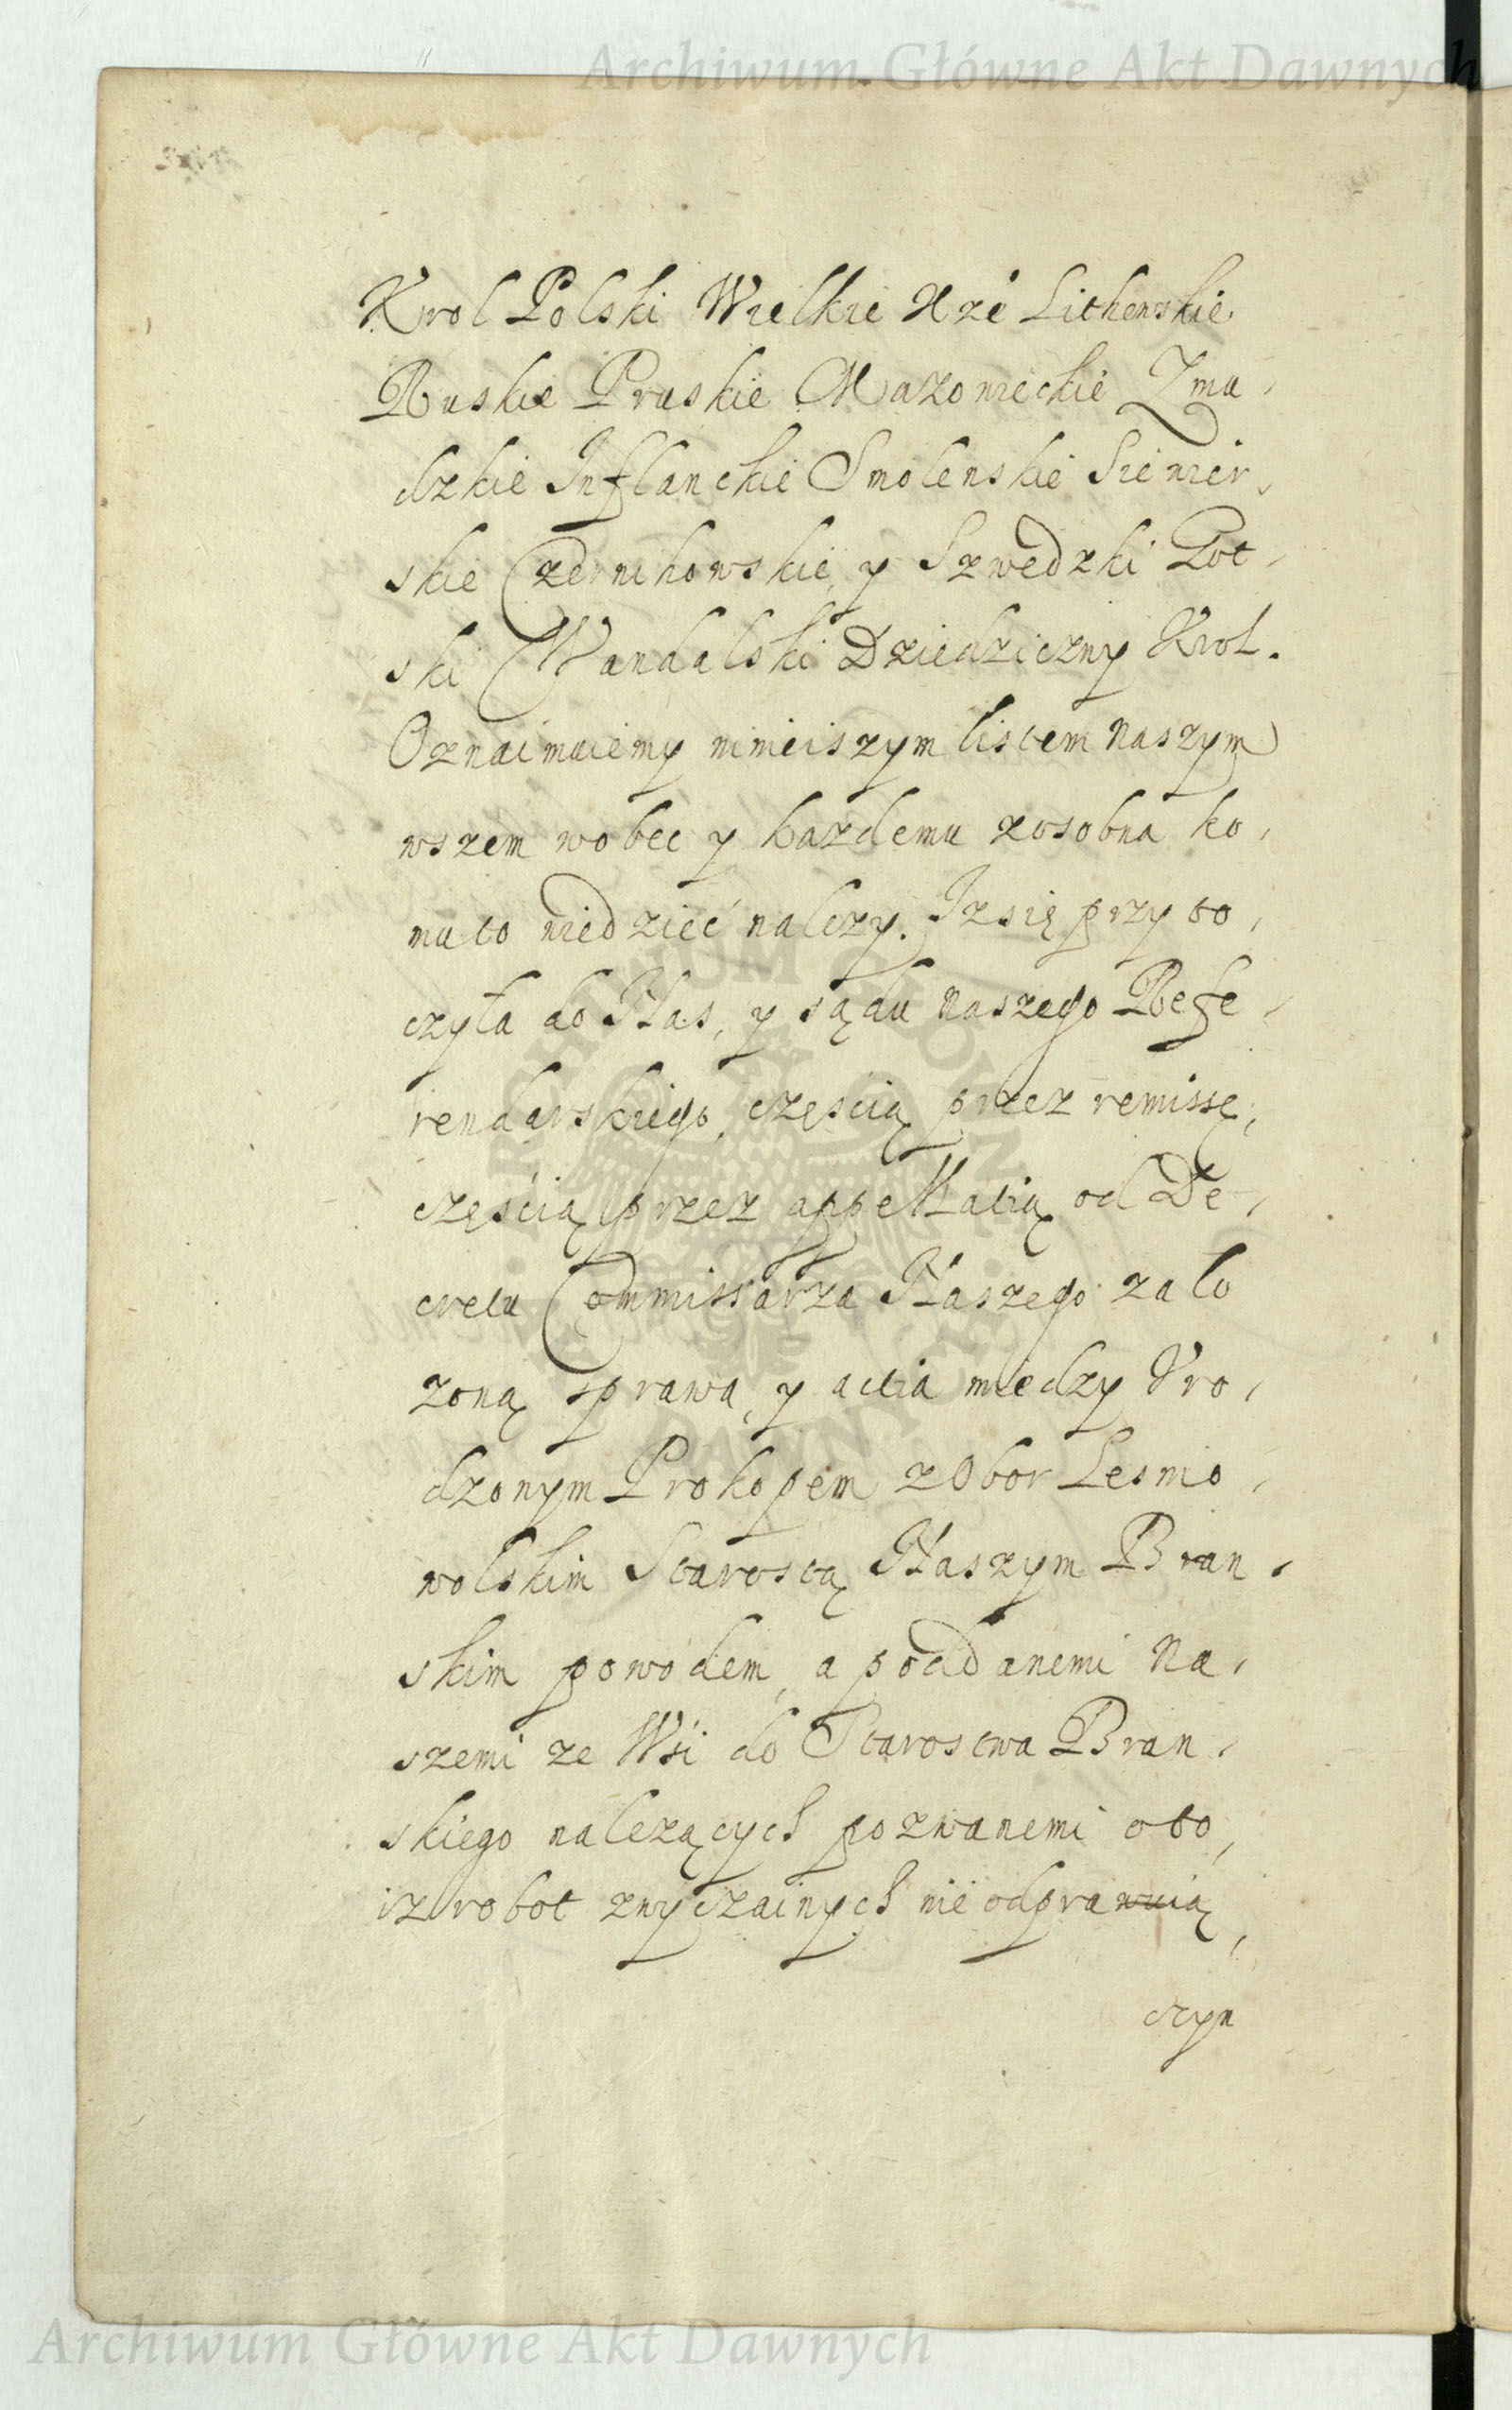 Archiwum Główne Akt Dawnych
Krol Polski Wielkie Xże Lithewskie
Ruskie Pruskie Mazowieckie Zmu,
dzkie Inflanckie Smolenskie Siewier,
skie Czernihowskie, y Szwedzki Got,
ski Wandalski Dziedziczny Krol.
Oznaimuiemy ninieiszym listem naszym
wszem wobec y kazdemu zosobna ko,
mu to wiedzieć nalezy. Iz się przyto,
czyła do Nas, y sądu naszego Refe,
rendarskiego, częscią przez remissę,
częścią przez appellatią od De,
cretu Commissarza Naszego zało
zoną sprawa, y actia miedzy Vro,
dzonym Prokopem z Obor Lesnio,
wolskim Starostą Naszym Bran,
skim powodem, a poddanemi Na,
szemi ze Wśi do Starostwa Bran,
skiego nalezących pozwanemi oto,
iz robot zwyczainych nie odprawuią,
czyn
Archiwum Główne Akt Dawnych